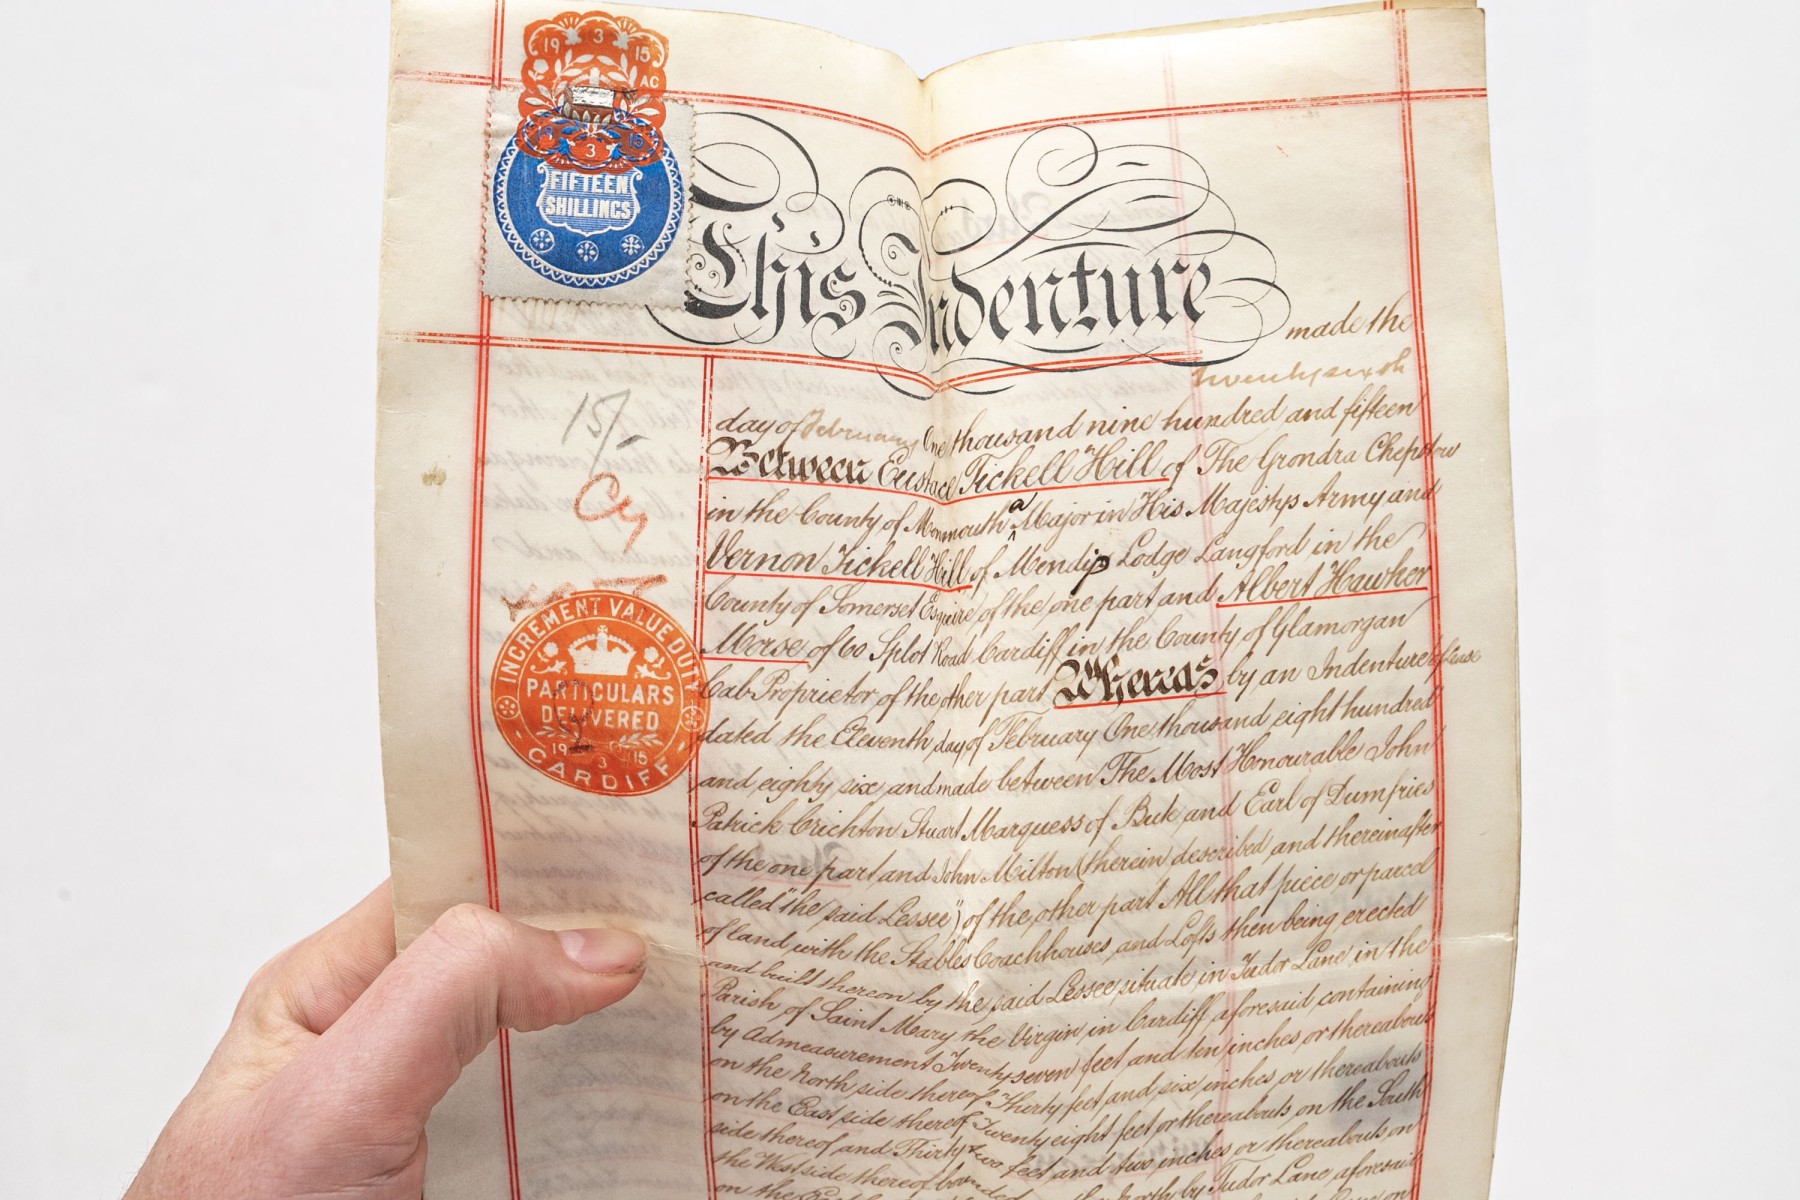 19 3 15
AC
3 15
FIFTEEN
SHILLINGS
This Indenture made the
twentysixth
day of February One thousand nine hundred and fifteen
Between Eustace Tickell Hill of The Grondra Chepstow
in the County of Monmouth a Major in His Majestys Army and
Vernon Tickell Hill of Mendip Lodge Langford in the
County of Somerset Esquire of the one part and Albert Hawker
Morse of 60 Splot Road Cardiff in the County of Glamorgan
Cab Proprietor of the other part Whereas by an Indenture of Lease
dated the Eleventh day of February One thousand eight hundred
and eighty six and made between The Most Honourable John
Patrick Crichton Stuart Marquess of Bute and Earl of Dumfries
of the one part and John Milton (therein described and thereinafter
called "the said Lessee") of the other part All that piece or parcel
of land with the Stables Coachhouses and Lofts then being erected
and built thereon by the said Lessee situate in Tudor Lane in the
Parish of Saint Mary the Virgin in Cardiff aforesaid containing
by Admeasurement Twenty seven feet and ten inches or thereabouts
on the North side thereof Thirty feet and six inches or thereabouts
on the East side thereof Twenty eight feet or thereabouts on the South
side thereof and Thirty two feet and two inches or thereabouts on
the West side thereof bounded on the North by Tudor Lane aforesaid
on the East
15/-
Cy
INCREMENT VALUE DUTY
PARTICULARS
DELIVERED
19 3 15
CARDIFF